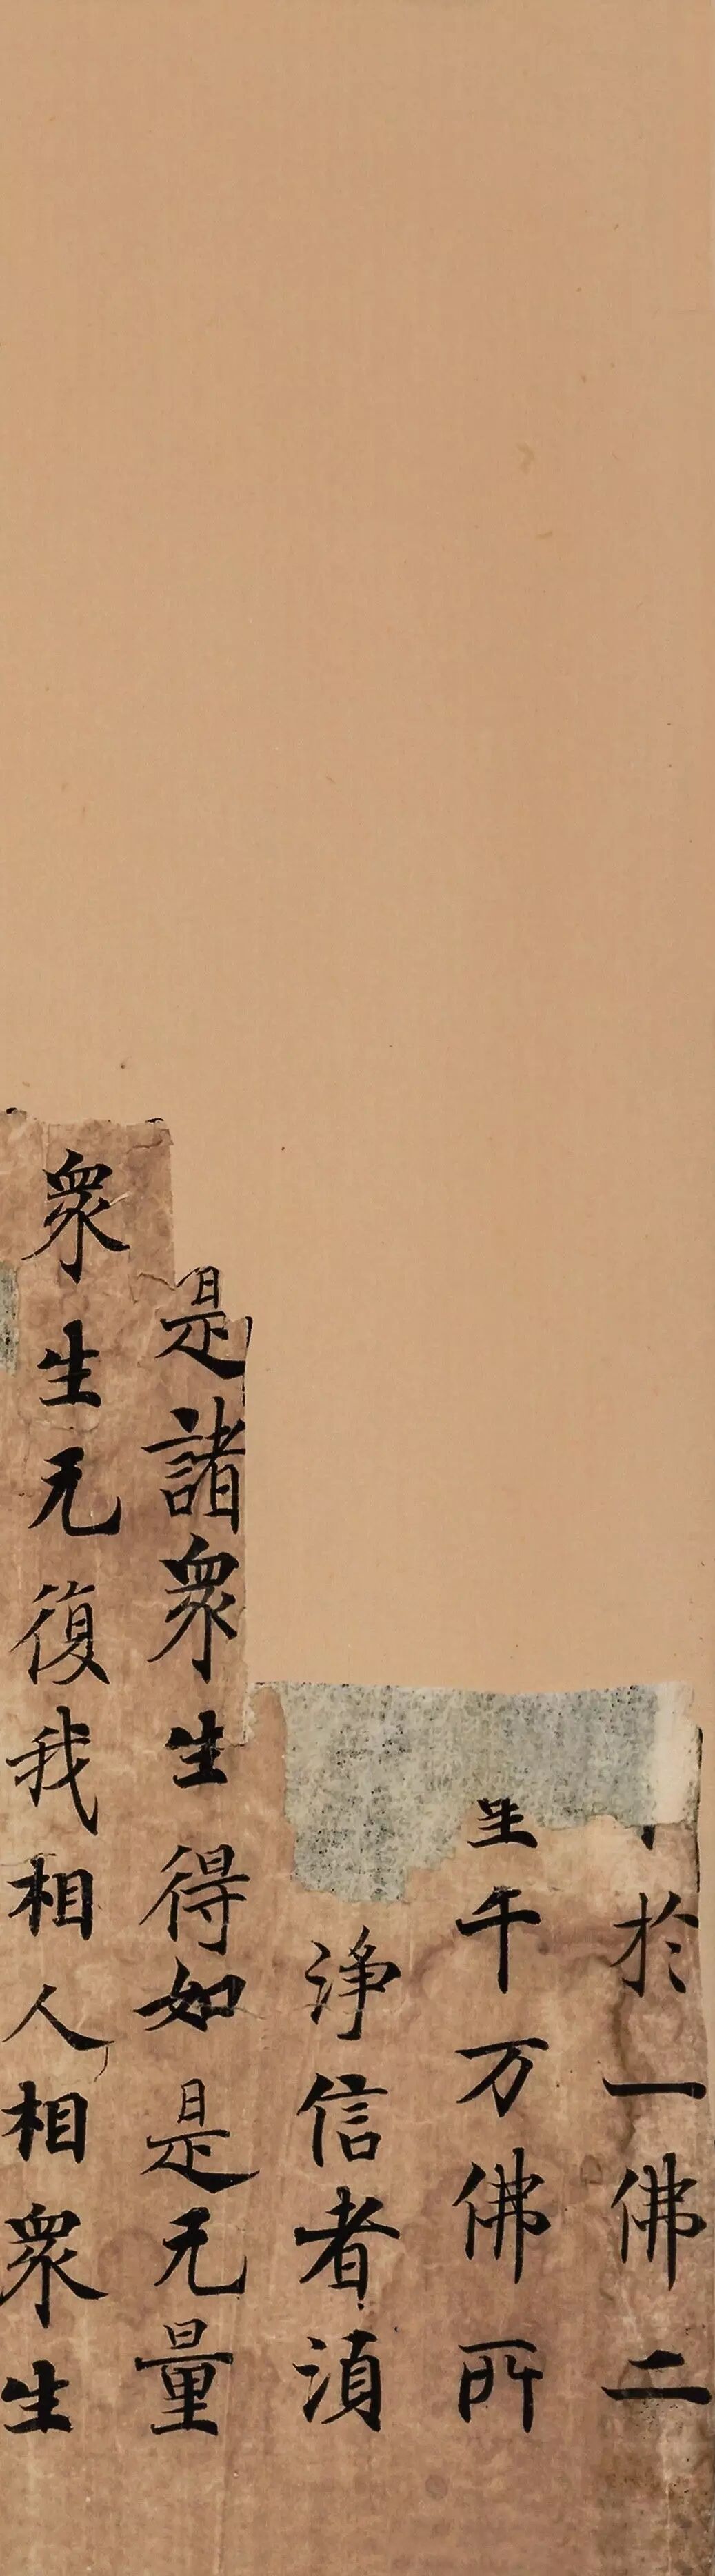 於一佛二
千万佛所
淨信者湏
是諸衆生得如是无量
衆生无復我相人相衆生